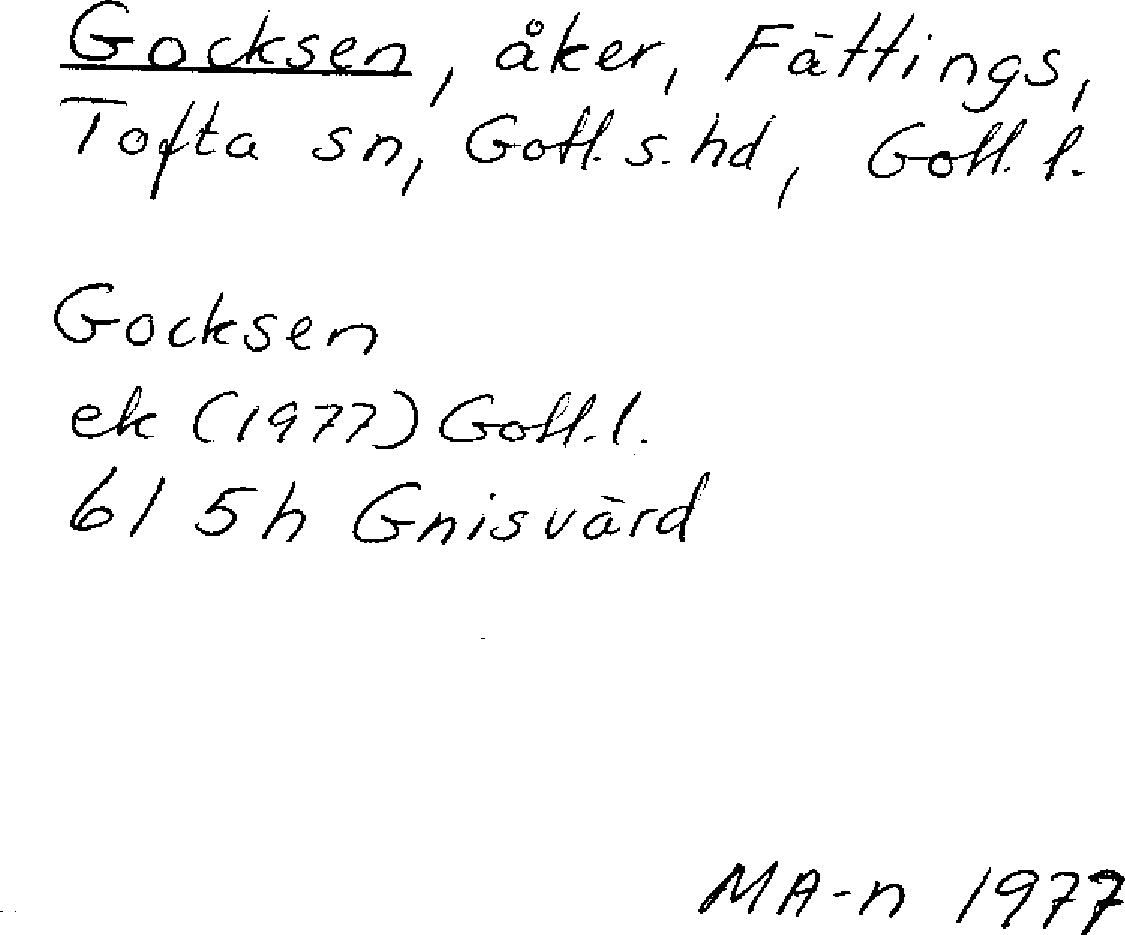 Gocksen, åker, Fättings,
Tofta sn, Gotl. s. hd, Gotl. l.
Gocksen
ek (1977) Gotl. l.
6I 5h Gnisvärd
MA-n 1977